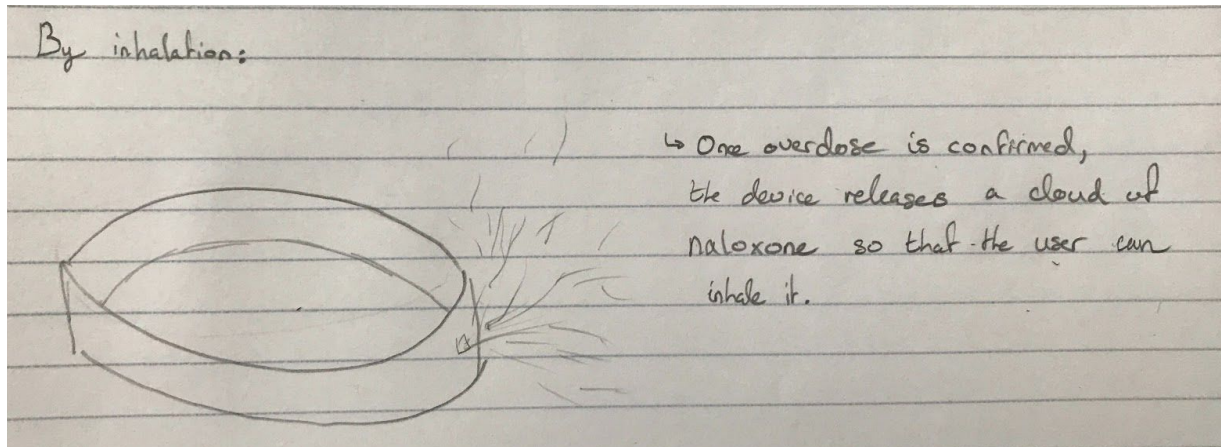 By inhalation:
↳ Once overdose is confirmed,
the device releases a cloud of
naloxone so that the user can
inhale it.